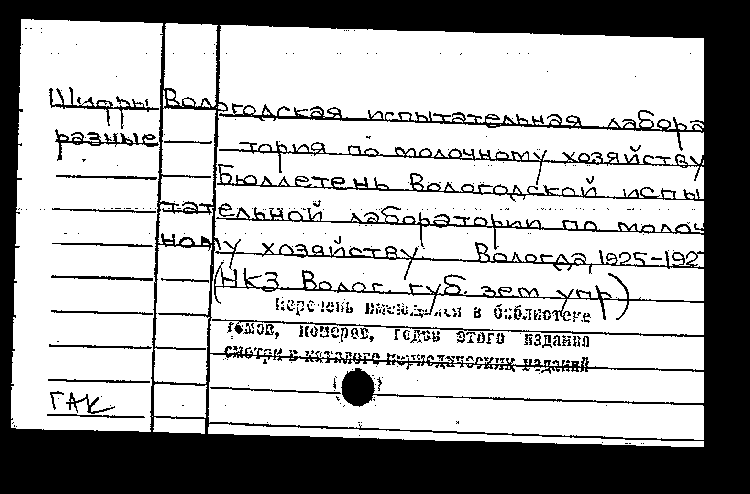 Шифры Вологодская испытательная лабора
разные тория по молочному хозяйству
Бюллетень Вологодской испы
тательной лаборатории по молоч
ному хозяйству. Вологда, 1925-192
(НКЗ Волог. губ. зем. упр)
Перечень имеющихся в библиотеке
томов, номеров, годов этого издания
смотри в каталоге периодических изданий
ГАК